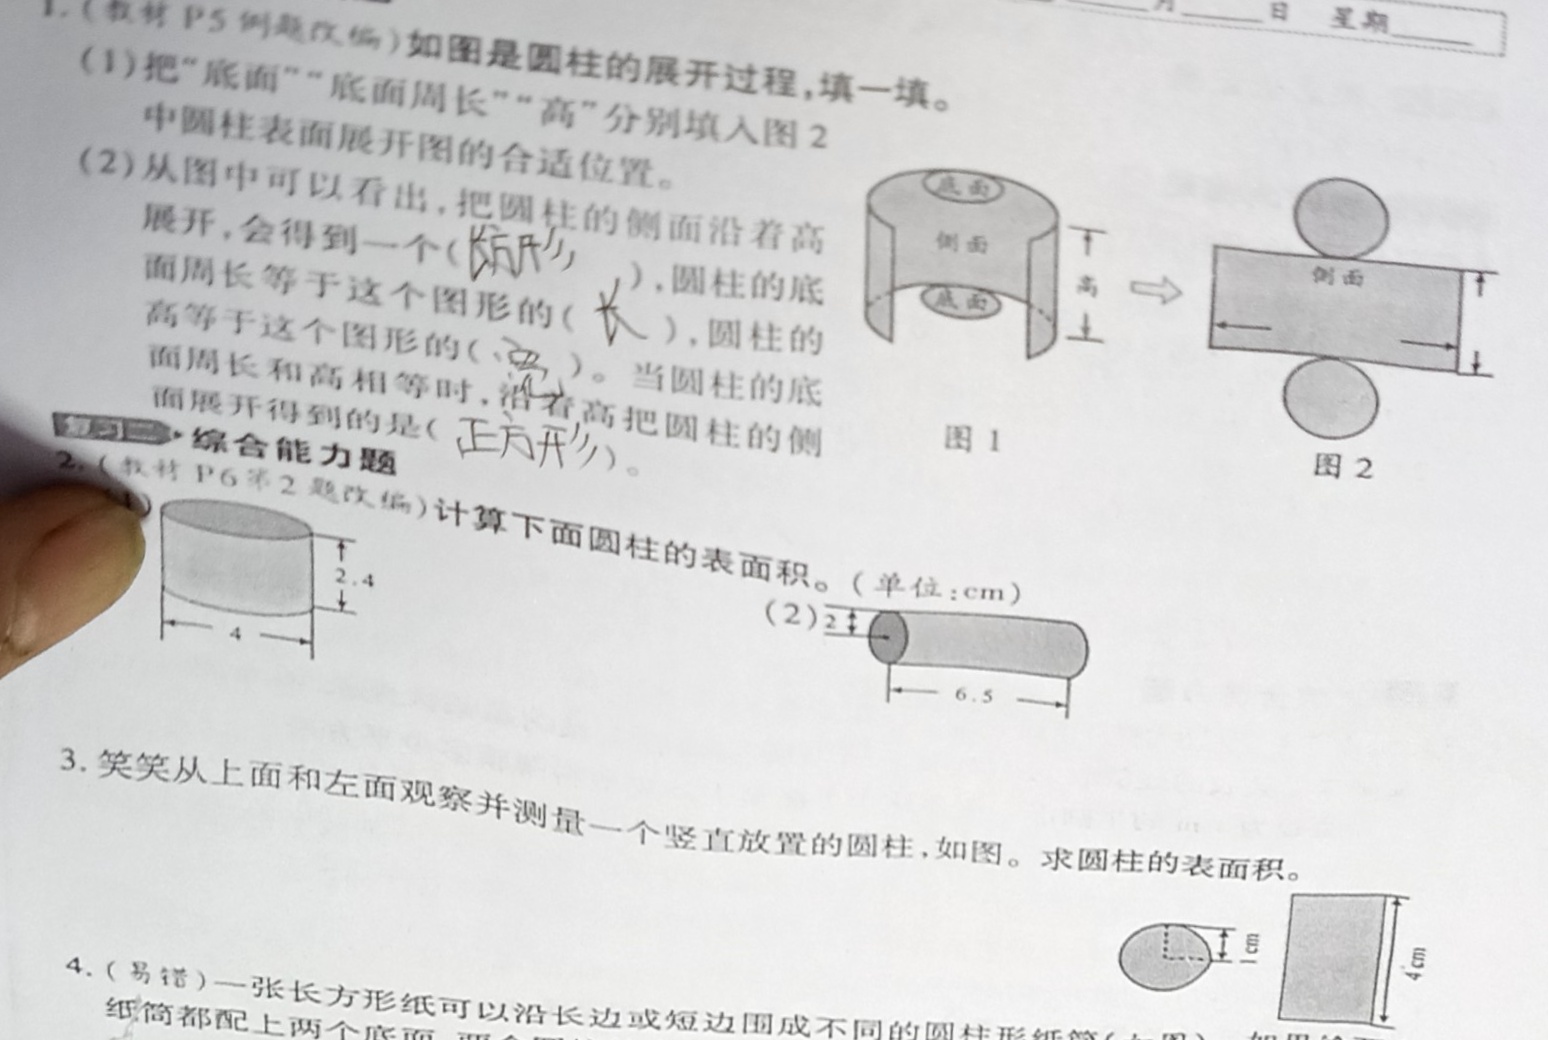 月____日 星期____
1.(教材P5例题改编)如图是圆柱的展开过程,填一填。
(1)把“底面”“底面周长”“高”分别填入图2
中圆柱表面展开图的合适位置。
(2)从图中可以看出,把圆柱的侧面沿着高
展开,会得到一个(长方形),圆柱的底
面周长等于这个图形的(长),圆柱的
高等于这个图形的(宽)。当圆柱的底
面周长和高相等时,沿着高把圆柱的侧
面展开得到的是(正方形)。
底面
侧面
底面
高
图1
侧面
图2
综合能力题
2.(教材P6第2题改编)计算下面圆柱的表面积。(单位:cm)
(1)
2.4
4
(2)
2
6.5
3.笑笑从上面和左面观察并测量一个竖直放置的圆柱,如图。求圆柱的表面积。
1cm
4cm
4.(易错)一张长方形纸可以沿长边或短边围成不同的圆柱形纸筒
纸筒都配上两个底面